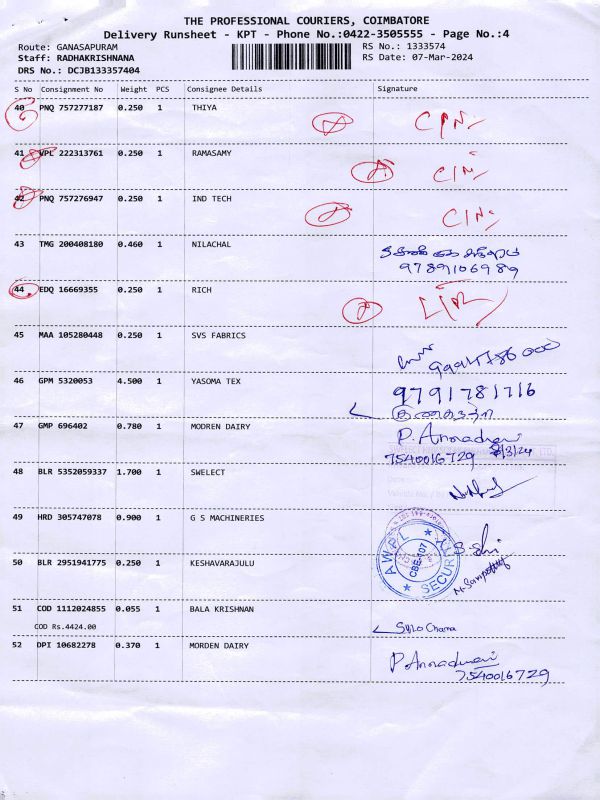 THE PROFESSIONAL COURIERS, COIMBATORE
Delivery Runsheet - KPT - Phone No.:0422-3505555 - Page No.:4
Route: GANASAPURAM
RS No.: 1333574
Staff: RADHAKRISHNANA
RS Date: 07-Mar-2024
DRS No.: DCJB133357404
S No Consignment No Weight PCS Consignee Details Signature
40 PNQ 757277187 0.250 1 THIYA
41 VPL 222313761 0.250 1 RAMASAMY
42 PNQ 757276947 0.250 1 IND TECH
43 TMG 200408180 0.460 1 NILACHAL
9789106989
44 EDQ 16669355 0.250 1 RICH
45 MAA 105280448 0.250 1 SVS FABRICS
46 GPM 5320053 4.500 1 YASOMA TEX 9791781716
47 GMP 696402 0.780 1 MODREN DAIRY P. Annadurai
7540016729 8/3/24
48 BLR 5352059337 1.700 1 SWELECT
49 HRD 305747078 0.900 1 G S MACHINERIES
AWPL SECURITY CBE-107
50 BLR 2951941775 0.250 1 KESHAVARAJULU
51 COD 1112024855 0.055 1 BALA KRISHNAN
COD Rs.4424.00
52 DPI 10682278 0.370 1 MORDEN DAIRY P. Annadurai
7540016729